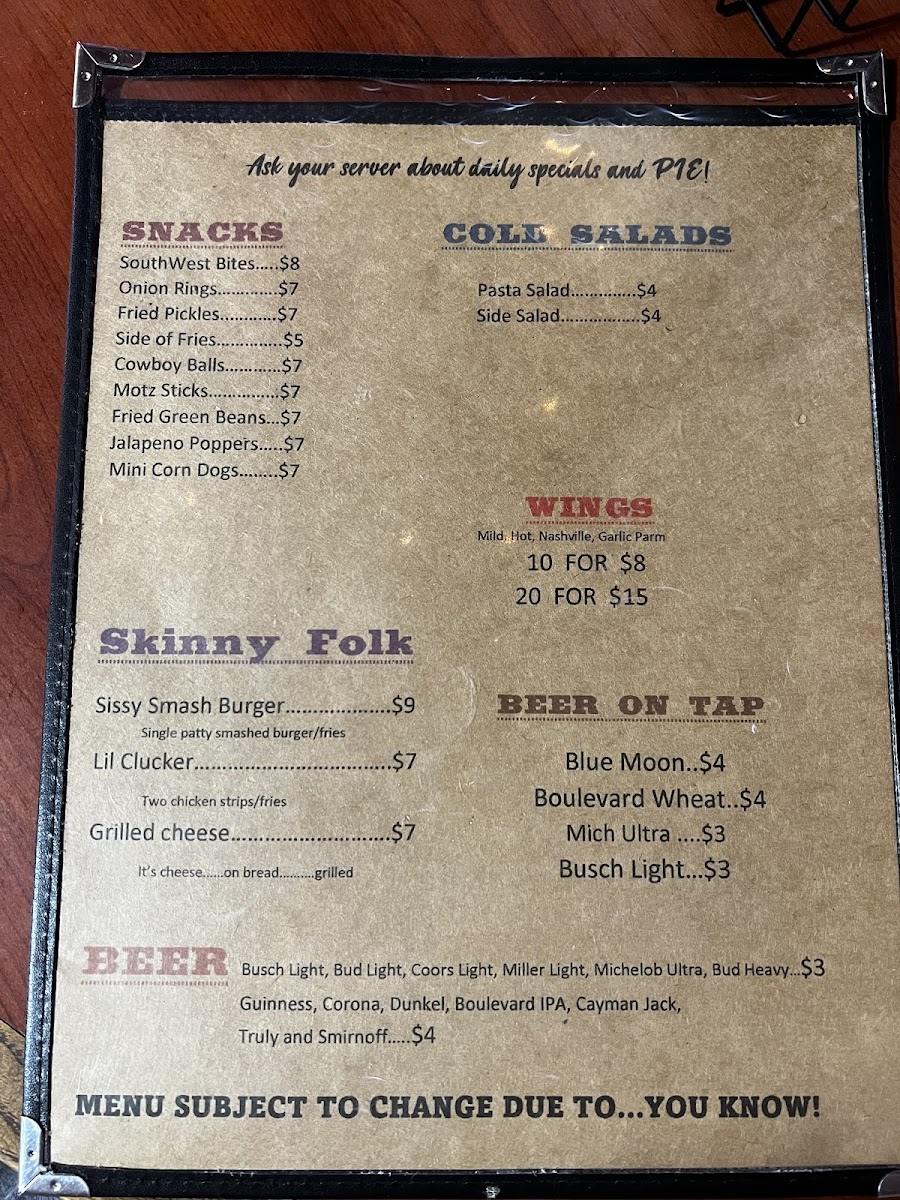 Ask your server about daily specials and PIE!
SNACKS
SouthWest Bites.....$8
Onion Rings.............$7
Fried Pickles............$7
Side of Fries..............$5
Cowboy Balls............$7
Motz Sticks...............$7
Fried Green Beans...$7
Jalapeno Poppers.....$7
Mini Corn Dogs........$7
COLD SALADS
Pasta Salad..............$4
Side Salad.................$4
WINGS
Mild, Hot, Nashville, Garlic Parm
10 FOR $8
20 FOR $15
Skinny Folk
Sissy Smash Burger...................$9
Single patty smashed burger/fries
Lil Clucker...................................$7
Two chicken strips/fries
Grilled cheese............................$7
It's cheese......on bread..........grilled
BEER ON TAP
Blue Moon..$4
Boulevard Wheat..$4
Mich Ultra ....$3
Busch Light...$3
BEER Busch Light, Bud Light, Coors Light, Miller Light, Michelob Ultra, Bud Heavy...$3
Guinness, Corona, Dunkel, Boulevard IPA, Cayman Jack,
Truly and Smirnoff.....$4
MENU SUBJECT TO CHANGE DUE TO...YOU KNOW!